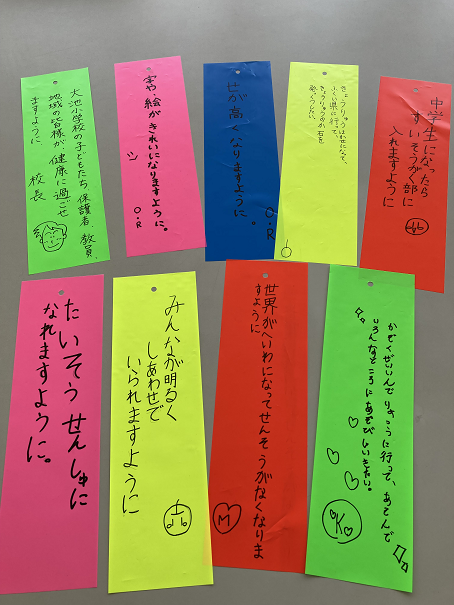 大池小学校の子どもたち、保護者、教員、
地域の皆様が健康に過ごせ
ますように。
校長
字や絵がきれいになりますように。
O.R
せが高くなりますように。
O.R
きょうりゅうはかせになって、
ふくい県に行って、
きょうりゅうの化石を
はっくつしたい。
中学生になったら
すいそうがく部に
入れますように
たいそうせんしゅに
なれますように。
みんなが明るく
しあわせで
いられますように
世界がへいわになってせんそうがなくなりま
すように
M
かぞくぜいいんで りょこうに行って、
いろんなところに
K